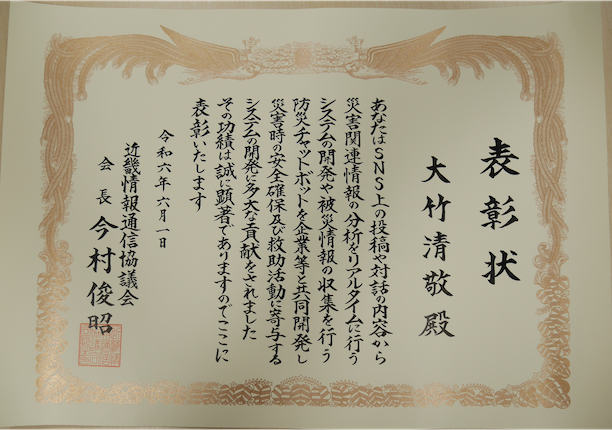 表彰状
大竹清敬殿
あなたはSNS上の投稿や対話の内容から
災害関連情報の分析をリアルタイムに行う
システムの開発や被災情報の収集を行う
防災チャットボットを企業等と共同開発し
災害時の安全確保及び救助活動に寄与する
システムの開発に多大な貢献をされました
その功績は誠に顕著でありますのでここに
表彰いたします
令和六年六月一日
近畿情報通信協議会
会長 今村俊昭